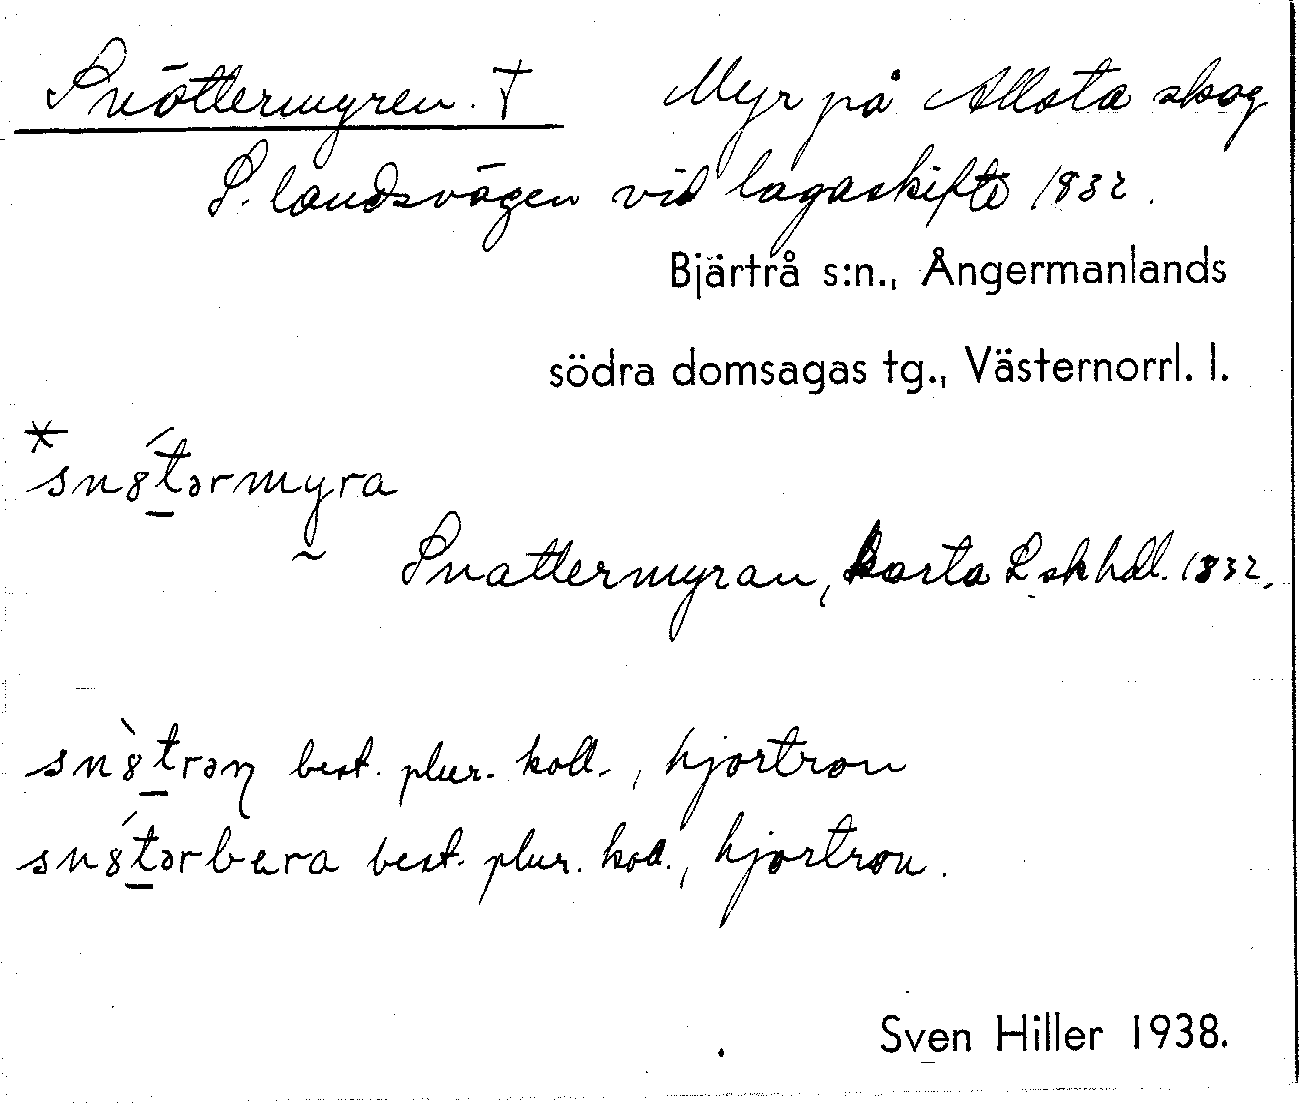 Snöttermyren. † Myr på Allsta skog
S. landsvägen vid lagaskifte 1832.
Bjärtrå s:n., Ångermanlands
södra domsagas tg., Västernorrl. l.
*sn8́tərmyra
Snattermyran, karta L skhdl. 1832.
sn8̀trən best. plur. koll., hjortron
sn8́tərbæra best. plur. koll., hjortron.
Sven Hiller 1938.